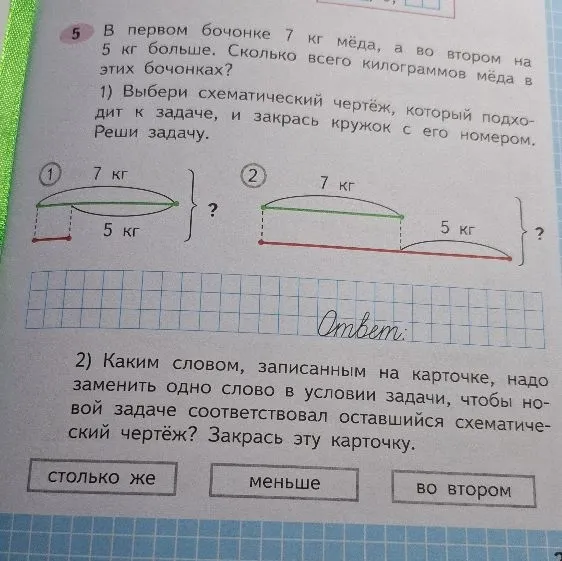 5 В первом бочонке 7 кг мёда, а во втором на
5 кг больше. Сколько всего килограммов мёда в
этих бочонках?
1) Выбери схематический чертёж, который подхо-
дит к задаче, и закрась кружок с его номером.
Реши задачу.
1 7 кг
5 кг
?
2 7 кг
5 кг
?
Ответ:
2) Каким словом, записанным на карточке, надо
заменить одно слово в условии задачи, чтобы но-
вой задаче соответствовал оставшийся схематиче-
ский чертёж? Закрась эту карточку.
столько же
меньше
во втором